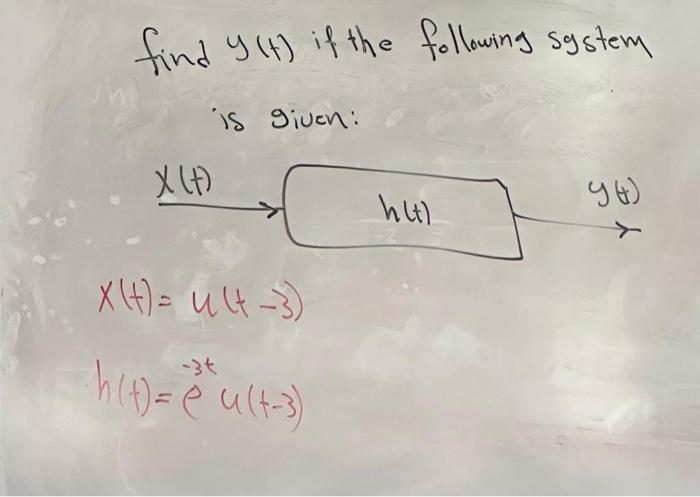 find y(t) if the following system
is given:
x(t)
h(t)
y(t)
x(t) = u(t-3)
h(t) = e^{-3t} u(t-3)